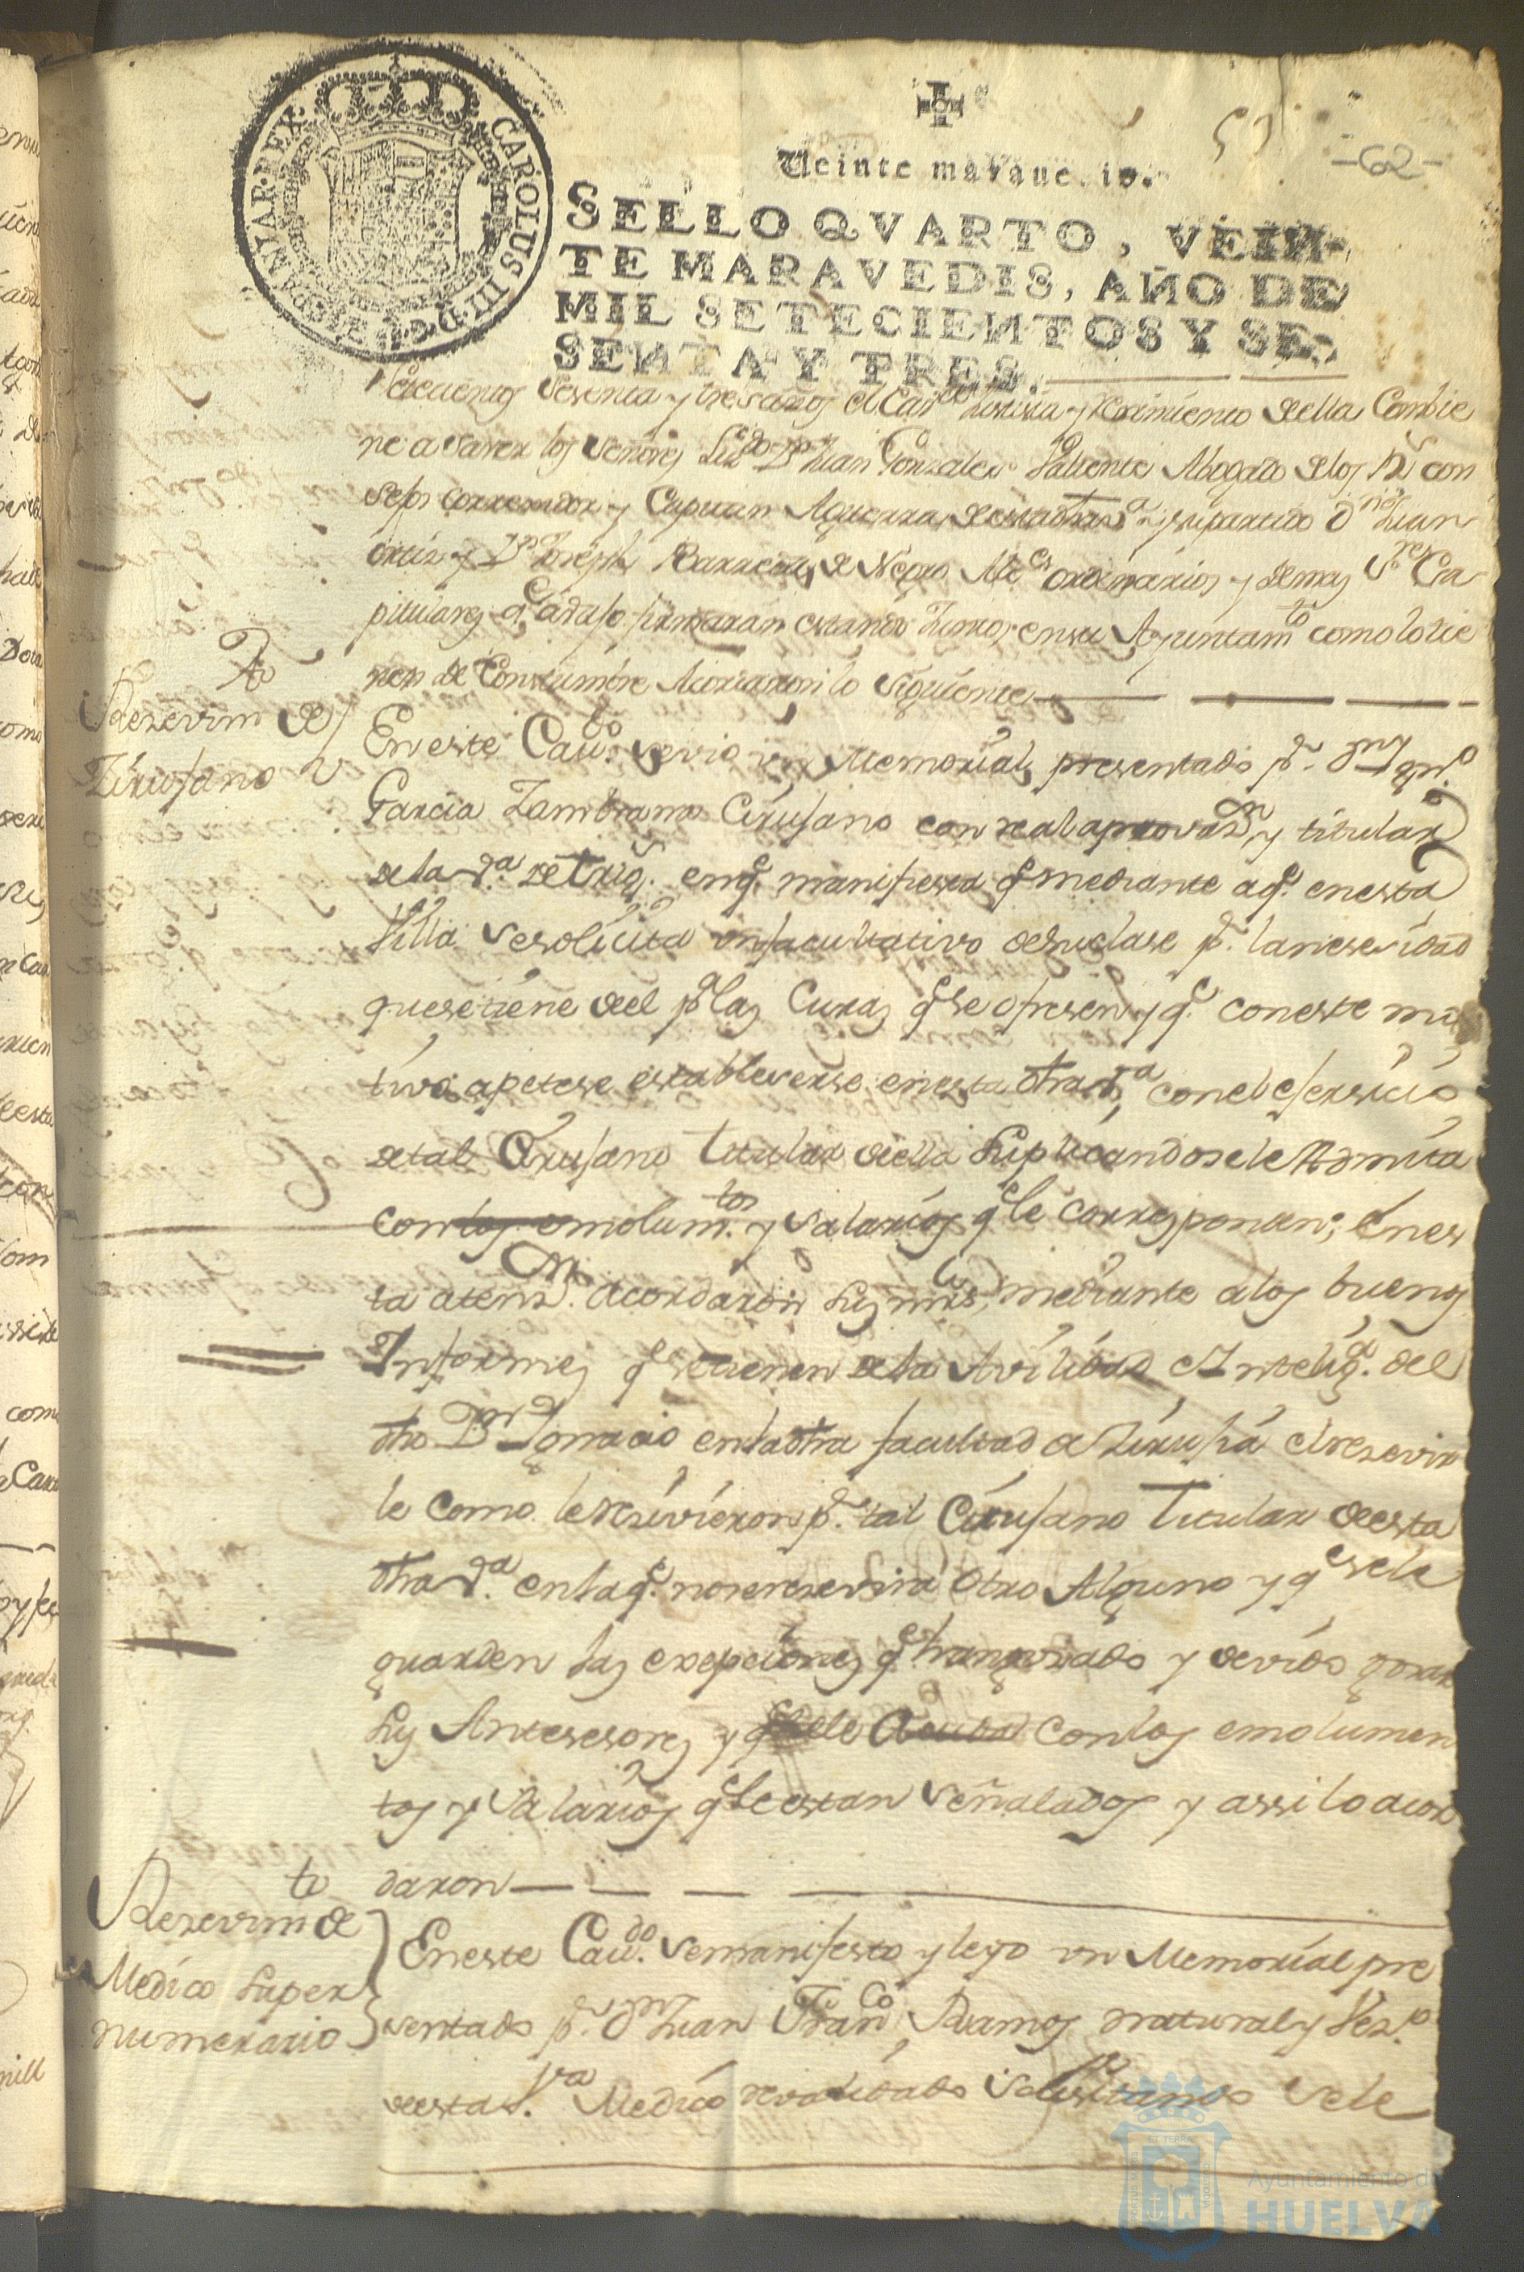 51
-62-
Veinte maravedis.
CAROLUS III D G HISPANIAR REX
SELLO QVARTO, VEIN-
TE MARAVEDIS, AÑO DE
MIL SETECIENTOS Y SE-
SENTA Y TRES.
setecientos sesenta y tres años el Cav.do Justisia y Reximiento de ella Combie
ne a saver los Señores Liz.do D.n Juan Gonzales Valiente Abogado de los R.s con
sejos correxidor y Capitan Aguerra de esta dha V.a y su partido d.n Juan
Ortiz y D.n Joseph de Negro Alc.es ordinarios y demas S.res Ca
pitulares q.e avajo firmaran estando Juntos en su Ayuntam.to como lo tie
nen de Constumbre Acordaron lo siguiente
Rezevim.to de
Zirujano
En este Cav.do se vio un Memorial presentado p.r d.n Ygn.o
Garcia Zambrano Cirujano con real aprovaz.on y titular
de la V.a de Trig.s en q.e manifiesta q.e mediante a q.e en esta
Villa se solicita un facultativo de su clase p.r la nesesidad
que se tiene de el p.a las Curas q.e se ofresen y q.e con este mo
tivo apetese estableserse en esta dha V.a con el exersicio
de tal Cirujano titular de ella Suplicando se le Admita
con los emolum.tos y Salarios q.e le corresponden; En es
ta atenz.on Acordaron sus mrs.des mediante a los buenos
Informes q.e se tienen de la Avilidad e Intelig.a del
dho D.n Ygnacio en la dha facultad de Zirujia el rezevir
le como le rezivieron p.r tal Cirujano Titular de esta
dha V.a en la q.e no se rezevira Otro Alguno y q.e se le
guarden las exepciones q.e han gozado y devido gozar
sus Antesesores y q.e se le Acuda con los emolumen
tos y Salarios q.e le estan Señalados y assi lo acor
daron
Rezevim.to de
Medico Super
numerario
En este Cav.do se manifesto y leyo un Memorial pre
sentado p.r d.n Juan Fran.co Ramos natural y Vez.o
de esta V.a Medico revalidado Solisitando se le
Ayuntamiento de
HUELVA